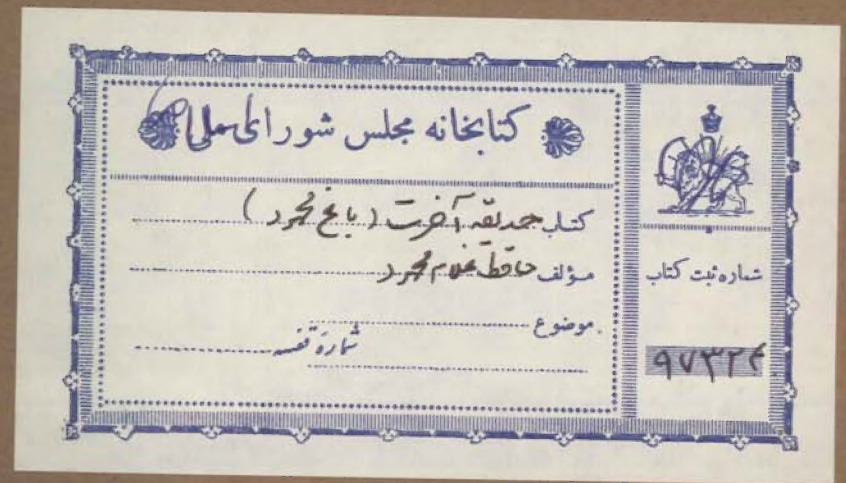 کتابخانه مجلس شورای ملی
کتاب حدیقه آخرت ( باغ محمود )
مؤلف حافظ غلام محمود
موضوع
شماره قفسه
شماره ثبت کتاب
۹۷۳۲۴